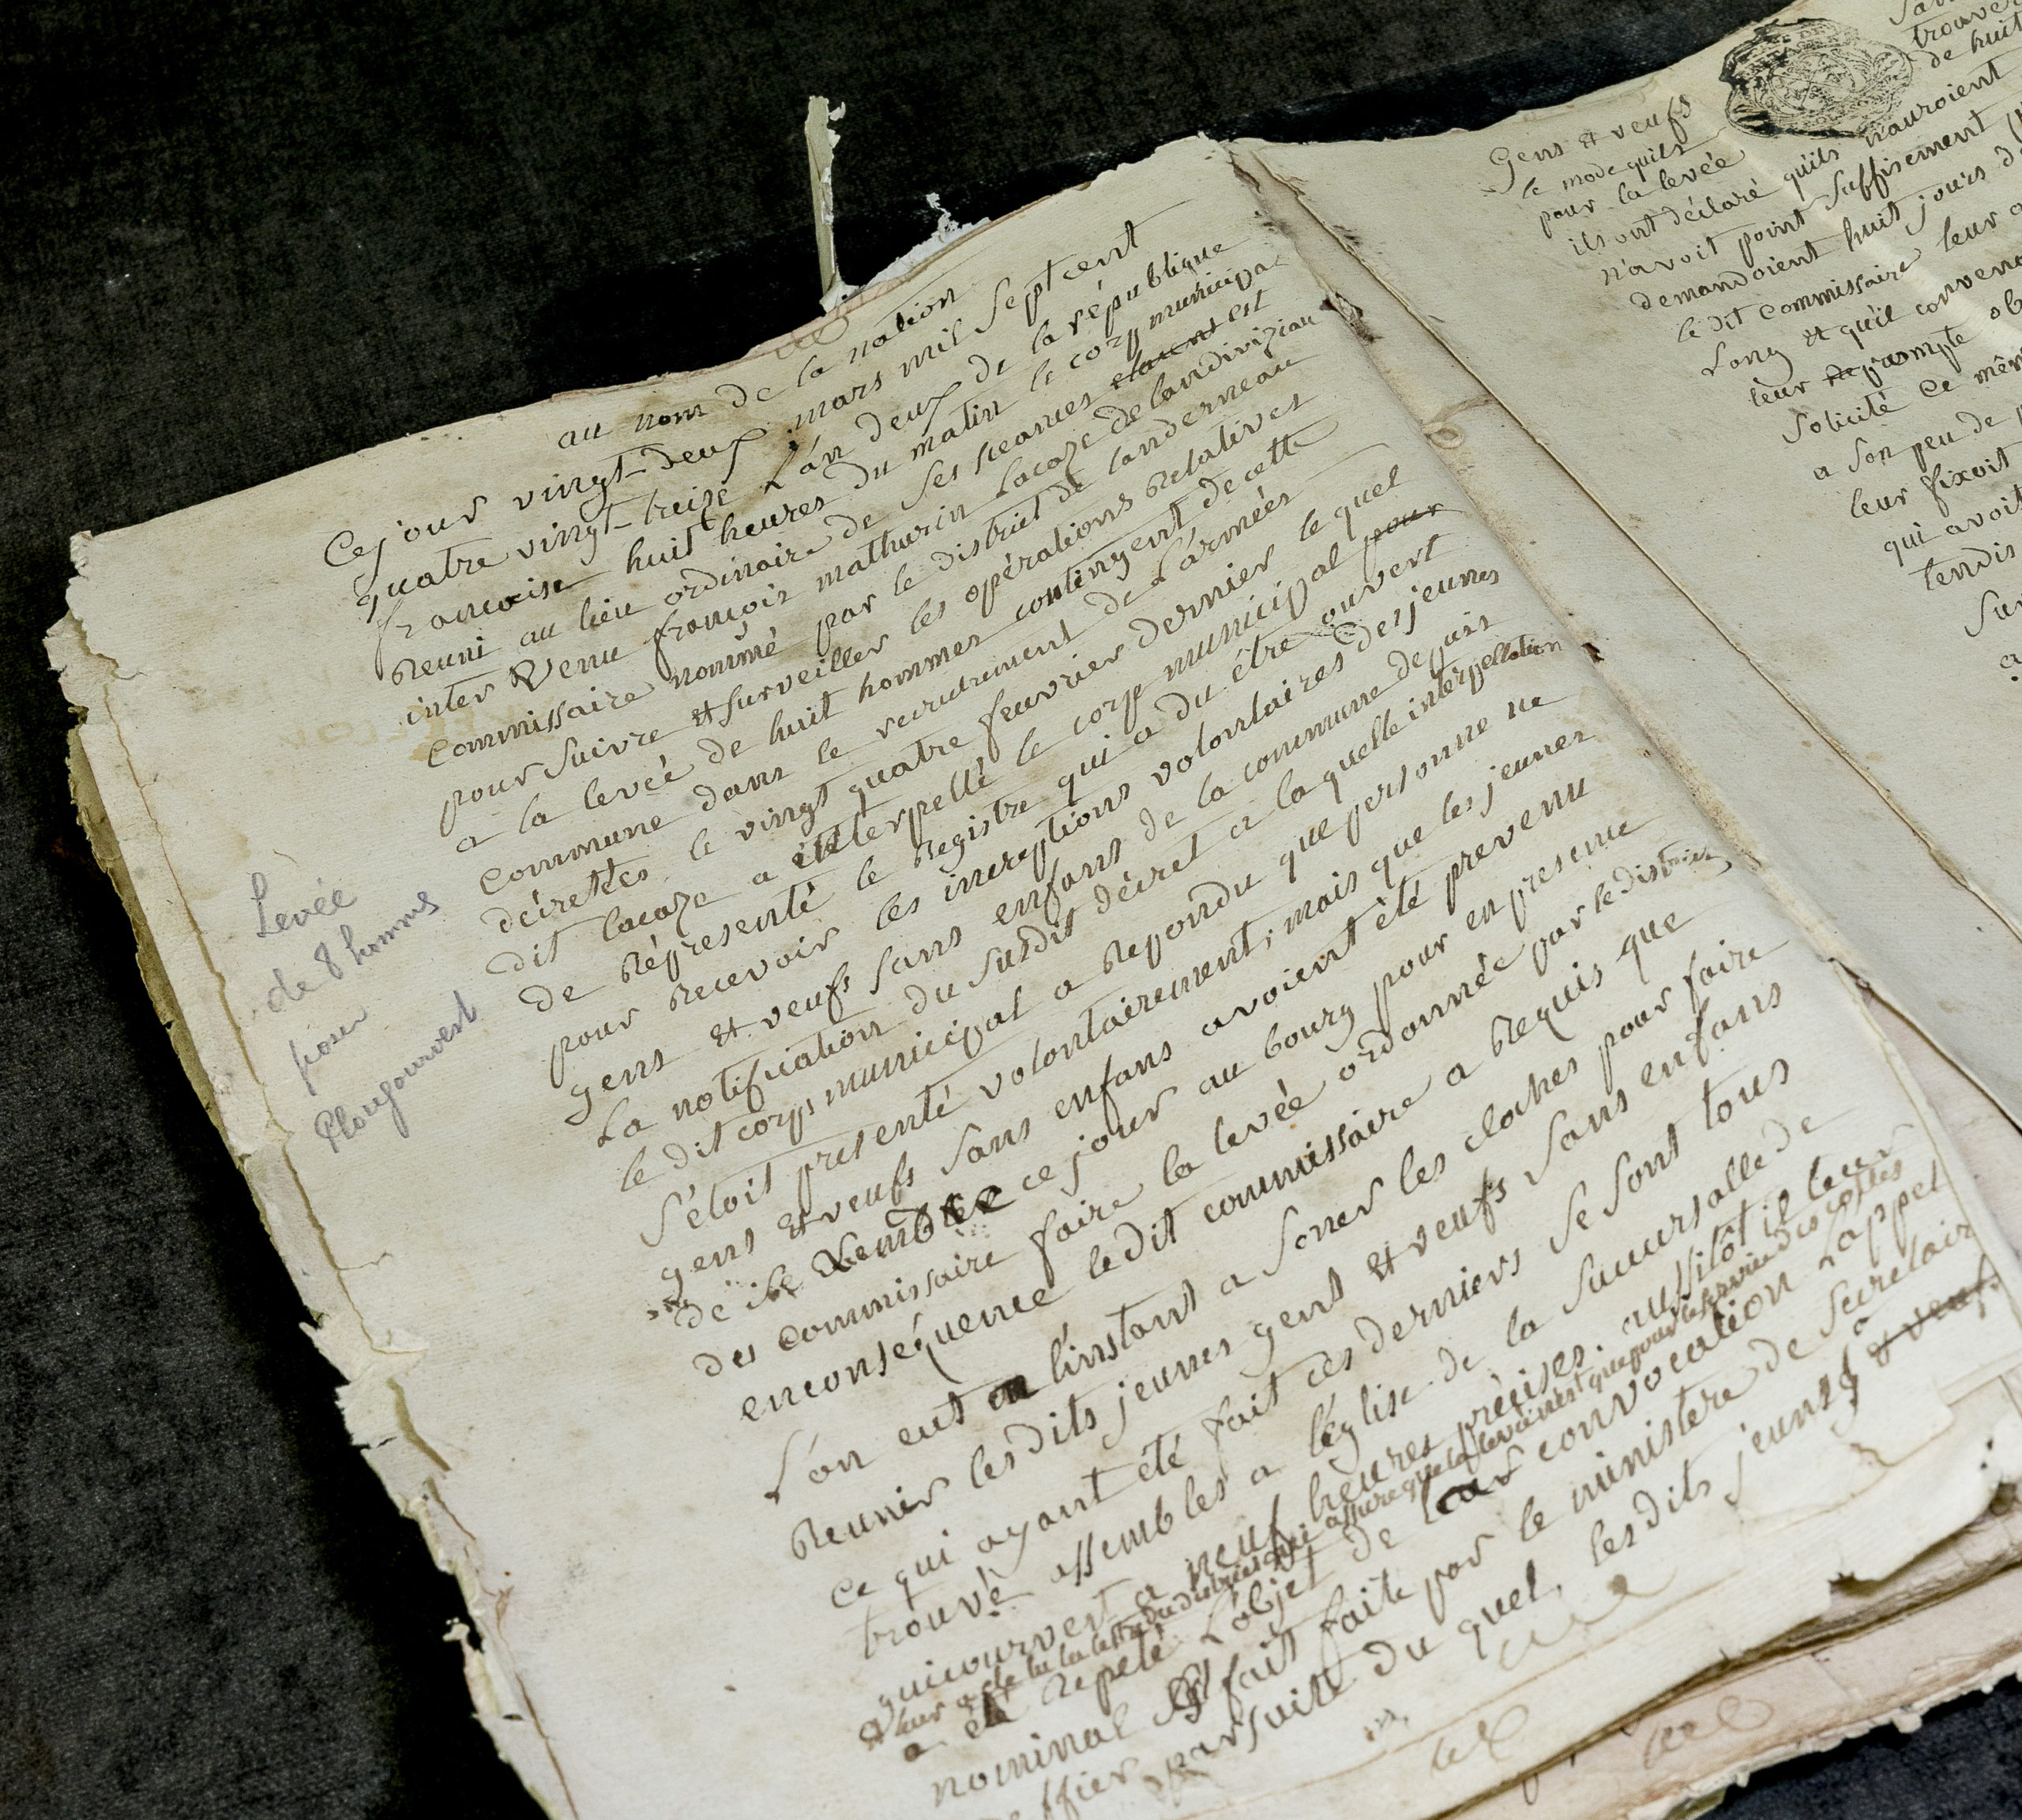 au nom de la nation
Ce jour vingt-deux mars mil Sept cent
quatre vingt-treize L'an deux de la république
francaise huit heures du matin le corps municipal
Reuni au lieu ordinaire de ses séances est
inter Venu francois mathurin Lacaze de landivizian
Commissaire nommé par le district de landerneau
pour Suivre et Surveiller les opérations Relatives
a la levée de huit hommes contingent de cette
Commune dans le recrutement de L'armées
décrettée le vingt quatre feuvrier dernier le quel
dit lacaze a interpellé le corps municipal pour
de Répresenté le Registre qui a du être ouvert
pour Recevoir les inscriptions volontaires des jeunes
gens et veufs sans enfans de la commune depuis
La notification du susdit décret a laquelle interpellation
le dit corps municipal a Repondu que personne ne
S'étoit presenté volontairement; mais que les jeunes
gens et veufs sans enfans avoient été prevenu
de ce jour au bourg pour en presence
des Commissaire faire la levée ordonnée par le district
en conséquence le dit commissaire a Requis que
L'on eut a l'instant a Soner les cloches pour faire
Reunir les dits jeunes gens et veufs sans enfans
Ce qui ayant été fait ces derniers se sont tous
trouvé assembles a léglise de la Sucursalle de
guicourvest a neuf heures précises. aussitôt il leur
a Repeté L'objet de leur convocation L'appel
nominal fait faite par le ministere de Secretair
parsuite du quel, les dits jeunes et veufs
Levée
de 8 hommes
pour
Plougourvest
trouve
de huit
Gens et veufs
le mode quils
pour la levée
ils ont déclaré qu'ils n'auroient
n'avoit point Suffisement
demandoient huit jours
le dit Commissaire leur
Long et qu'il
leur
Solicité ce
a Son peu de
leur fixoit
qui avoit
tendis